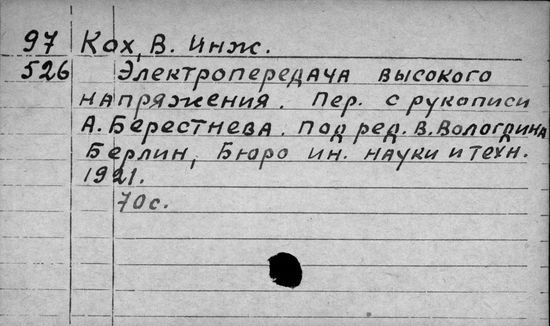 97 Кох, В. Инж.
526 Электропередача высокого
напряжения. Пер. с рукописи
А. Берестнева. Под ред. В. Вологдина
Берлин, Бюро ин. науки и техн.
1921.
70 с.